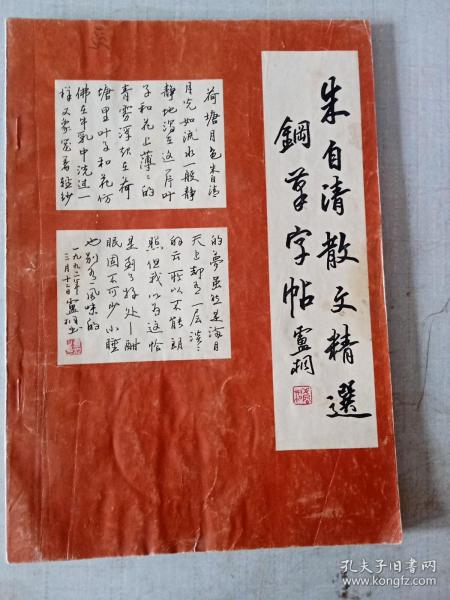 朱自清散文精選
鋼筆字帖
盧桐
荷塘月色朱自清
月光如流水一般静
静地泻在这一片叶
子和花上薄〻的
青雾浮起在荷
塘里叶子和花仿
佛在牛乳中洗过一
样又象笼着轻纱
的夢虽然是满月
天上却有一层淡〻
的云所以不能朗
照但我以为这恰
是到了好处—酣
眠固不可少小睡
也别有风味的
一九九二年
三月十二日盧桐书
孔夫子旧书网
www.kongfz.com